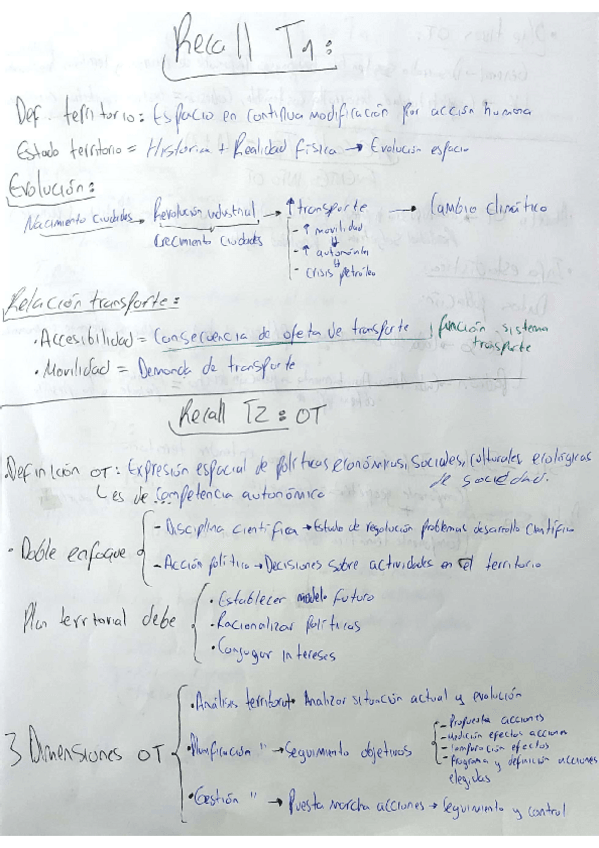 Recall T1:
Def. territorio: Espacio en continua modificación por acción humana
Estado territorio = Historia + Realidad física → Evolución espacio
Evolución:
Nacimiento ciudades → Revolución industrial → ↑ transporte → Cambio climático
crecimiento ciudades
- ↑ movilidad
- ↑ automóviles
- crisis petróleo
Relación transporte:
· Accesibilidad = Consecuencia de oferta de transporte, función sistema transporte
· Movilidad = Demanda de transporte
Recall T2: OT
· Definición OT: Expresión espacial de políticas económicas, sociales, culturales ecológicas
de sociedad.
↳ es de competencia autonómica
· Doble enfoque
- Disciplina científica → Estudio de resolución problemas desarrollo científico
- Acción política → Decisiones sobre actividades en el territorio
Plan territorial debe
· Establecer modelo futuro
· Racionalizar políticas
· Conjugar intereses
3 Dimensiones OT
· Análisis territorio → Analizar situación actual y evolución
· Planificación " → Seguimiento objetivos
- Propuesta acciones
- Medición efectos acciones
- efectos
- Programa y definición acciones
elegidas
· Gestión " → Puesta marcha acciones → Seguimiento y control